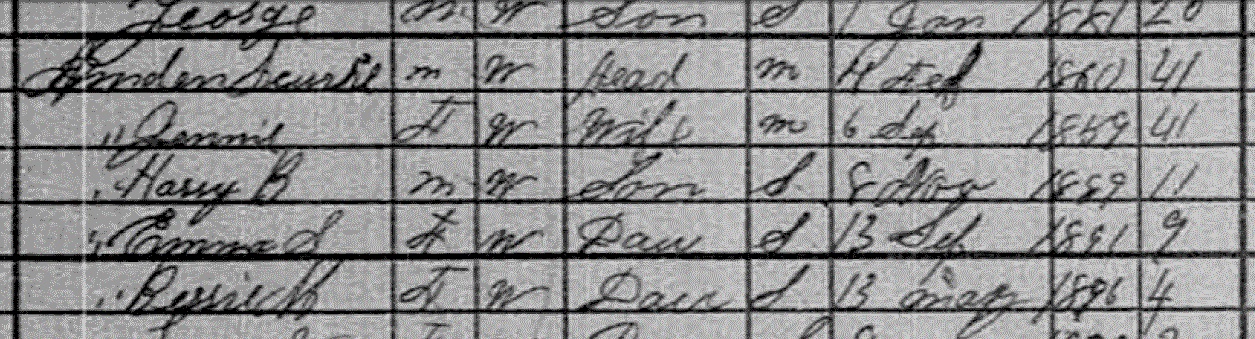 George m W Son S 1 Jan 1881 20
m W Head m 4 Feb 1860 41
" Jennie F W Wife m 6 Sep 1859 41
" Harry B m W Son S. 8 Nov 1889 11
" Emma S F W Dau S. 13 Sep 1891 9
" Bessie H F W Dau S. 13 May 1896 4